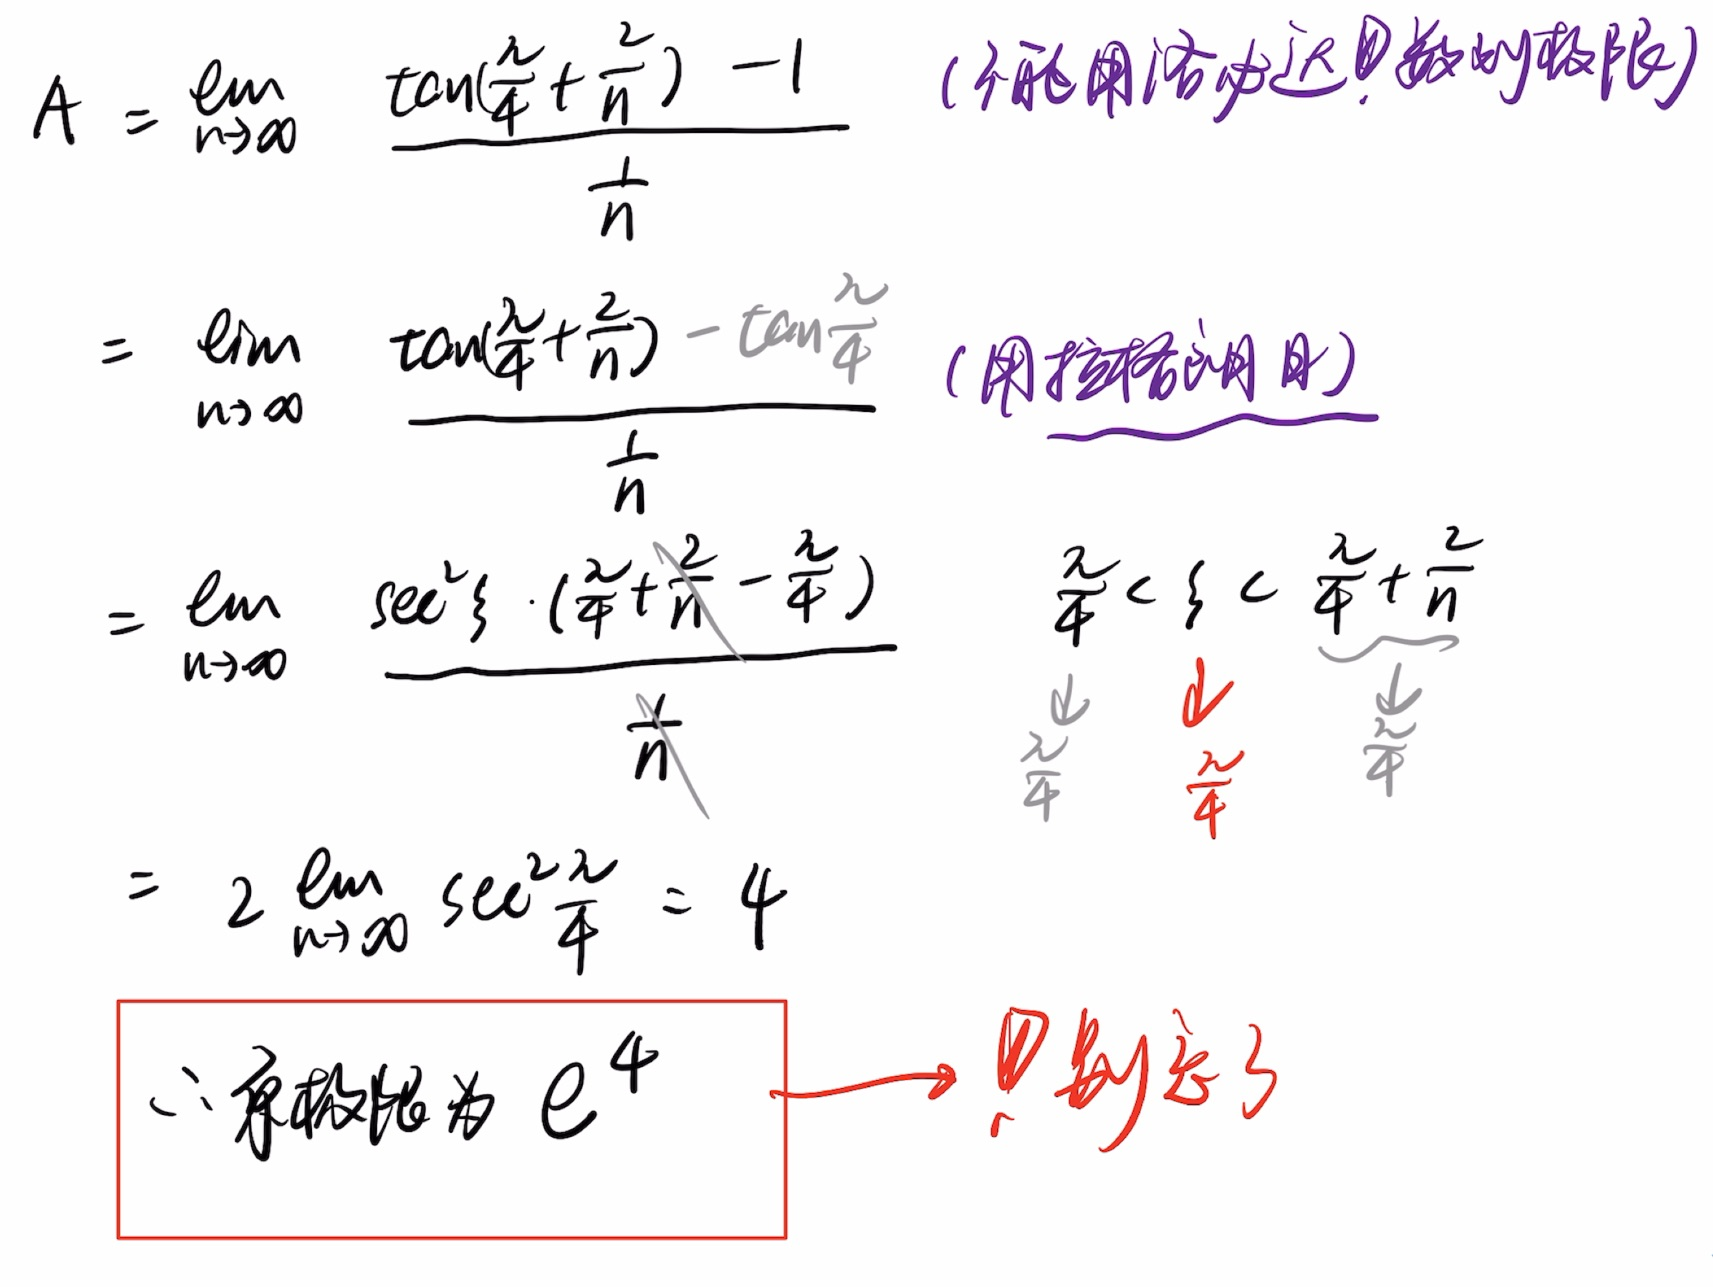 A = lim n→∞ (tan(π/4 + 2/n) − 1) / (1/n) (不能用洛必达!数列极限)
= lim n→∞ (tan(π/4 + 2/n) − tan π/4) / (1/n) (用拉格朗日)
= lim n→∞ (sec²ξ · (π/4 + 2/n − π/4)) / (1/n) π/4 < ξ < π/4 + 2/n
↓ π/4 ↓ π/4 ↓ π/4
= 2 lim n→∞ sec² π/4 = 4
∴ 原极限为 e⁴ → 别忘了